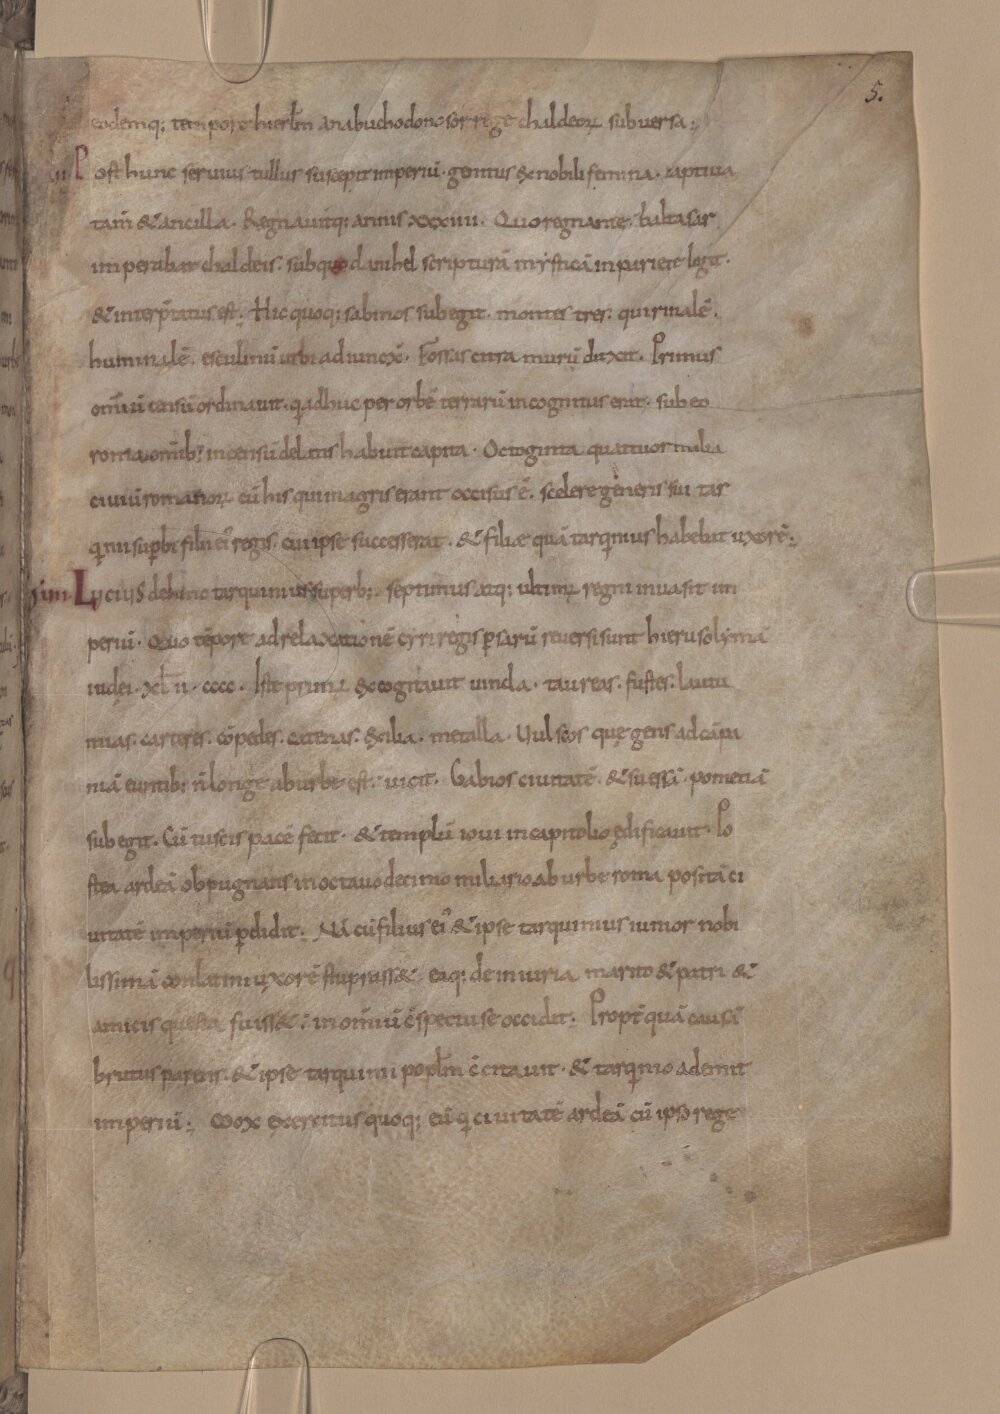 5.
eodemq; tempore hierłm a nabuchodonosor rege chaldeoꝝ subversa;
vii Post hunc servius tullus suscepit imperiū. genitus ex nobili femina. captiva
tam̄ & ancilla. Regnavitq; annis xxxiiii. Quo regnante baltasar
imperabat chaldeis. sub quo danihel scripturā mysticā in pariete legit.
& interp̄tatus est. Hic quoq; sabinos subegit. montes tres. quirinalē.
huminalē. esculinū urbi adiunex̄. Fossas circa murū duxit. Primus
omīū censū ordinavit. q̄ adhuc per orbē terrarū incognitus erat. sub eo
roma omīb; in censū delatis habuit capita. Octoginta quattuor milia
civiū romanoꝝ cū his qui in agris erant occisus ē. scelere generis sui tar
q̄nii supbi filii ei' regis. cui ipse successerat. & filiæ quā tarq̄nius habebat uxorē;
viiii. Lucius dehinc tarquinius superb; septimus atq; ultimꝰ regni invasit im
periū. Quo tēpore ad relaxationē cyri regis psarū reversi sunt hierusolymā
iudei. xl ii. cccc. Iste primꝰ excogitavit vincla. taureas. fustes. lautu
mias. carceres. cōpedes. catenas. exilia. metalla. Vulscos que gens ad cāpa
niā euntib; n̄ longe ab urbe est. vicit. Gabios civitatē. & suessā. pometiā
subegit. Cū tuscis pacē fecit. & templū iovi in capitolio ędificavit. Po
stea ardeā obpugnans in octavo decimo miliario ab urbe roma positā ci
vitatē imperiū pdidit. Nā cū filius ei' & ipse tarquinius iunior nobi
lissimā conlatini uxorē stuprass&. eaq; de iniuria marito & patri &
amicis questa fuiss&. in omīū c̄spectu se occidit. Propt̄ quā causā
brutus parens. & ipse tarquinii popłm c̄citavit. & tarq̄nio ademit
imperiū; Mox exercitus quoq; eū q̄ civitatē ardeā cū ipso rege